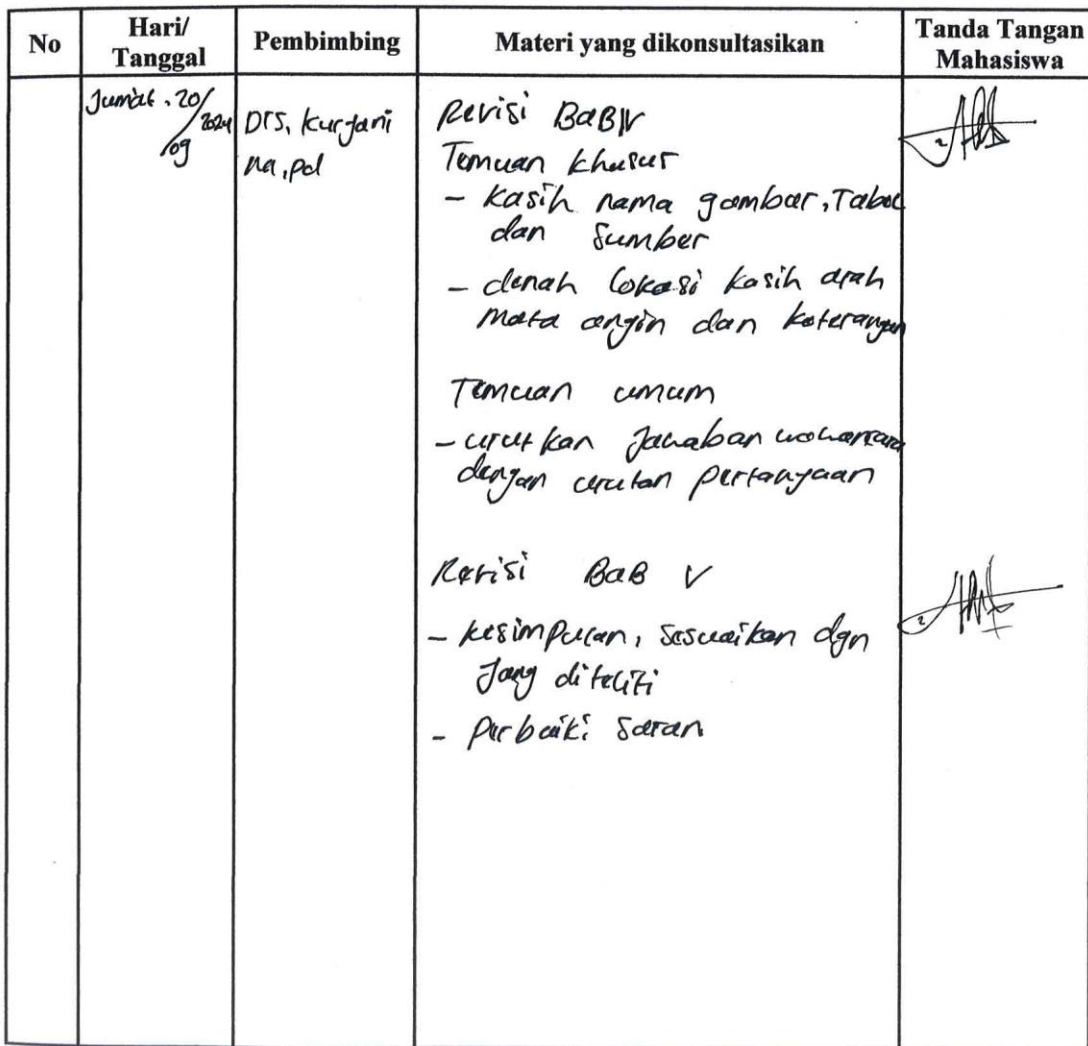 No
Hari/
Tanggal
Pembimbing
Materi yang dikonsultasikan
Tanda Tangan
Mahasiswa
Jumat, 20/
09
2024
Drs, kurjani
Ma,pd
Revisi BaB IV
Temuan khusus
- kasih nama gambar, Tabel
dan Sumber
- denah lokasi kasih arah
mata angin dan keterangan
Temuan umum
- urutkan Jawaban wawancara
dengan urutan pertanyaan
Revisi BaB V
- kesimpulan, sesuaikan dgn
Yang diteliti
- perbaiki saran